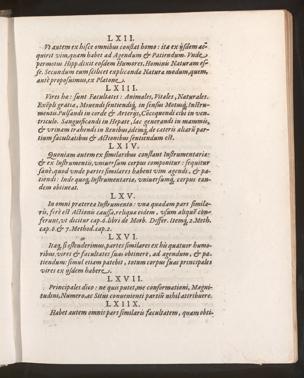 LXII.
Vt autem ex hisce omnibus constat homo: ita ex ijsdem ac-
quirit vim, quam habet ad Agendum & Patiendum. Vnde
permotus Hipp. dixit eosdem Humores, Hominis Naturam es-
se. Secundum eum scilicet explicanda Natura modum, quem,
ante proposuimus, ex Platone.
LXIII.
Vires hæ: sunt Facultates: Animales, Vitales, Naturales.
Exẽpli gratia, Mouendi sentiendiq́; in sensus Motusq́; Instru-
mentis: Pulsandi in corde & Arterijs, Concoquendi cibi in ven-
triculo. Sanguificandi in Hepate, lac generandi in mammis,
& vrinam trahendi in Renibus, idemq́; de cæteris aliarũ par-
tium facultatibus & Actionibus sentiendum est.
LXIV.
Quoniam autem ex similaribus constant Instrumentariæ:
& ex Instrumentis, vniuersum corpus componitur: sequitur
sanè: quod vnde partes similares habent vim agendi, & pa-
tiendi: Inde quoq́; Instrumentariæ, vniuersumq́; corpus ean-
dem obtineat.
LXV.
In omni præterea Instrumento: vna quædam pars simila-
ris, ferè est Actionis causa, reliquæ eidem, vsum aliquẽ con-
ferunt, vt dicitur cap. 6. libri de Morb. Differ. Itemq́; 2. Meth.
cap. 6. & 7. Method. cap. 2.
LXVI.
Itaq́; si ostenderimus, partes similares ex his quatuor humo-
ribus, vires & facultates suas obtinere, ad agendum, & pa-
tiendum: simul etiam patebit, totum corpus suas principales
vires ex ijsdem habere.
LXVII.
Principales dico: ne quis putet, me conformationi, Magni-
tudini, Numero, ac Situs conuenienti partiũ nihil attribuere.
LXIIX.
Habet autem omnis pars similaris facultatem, quam obti-